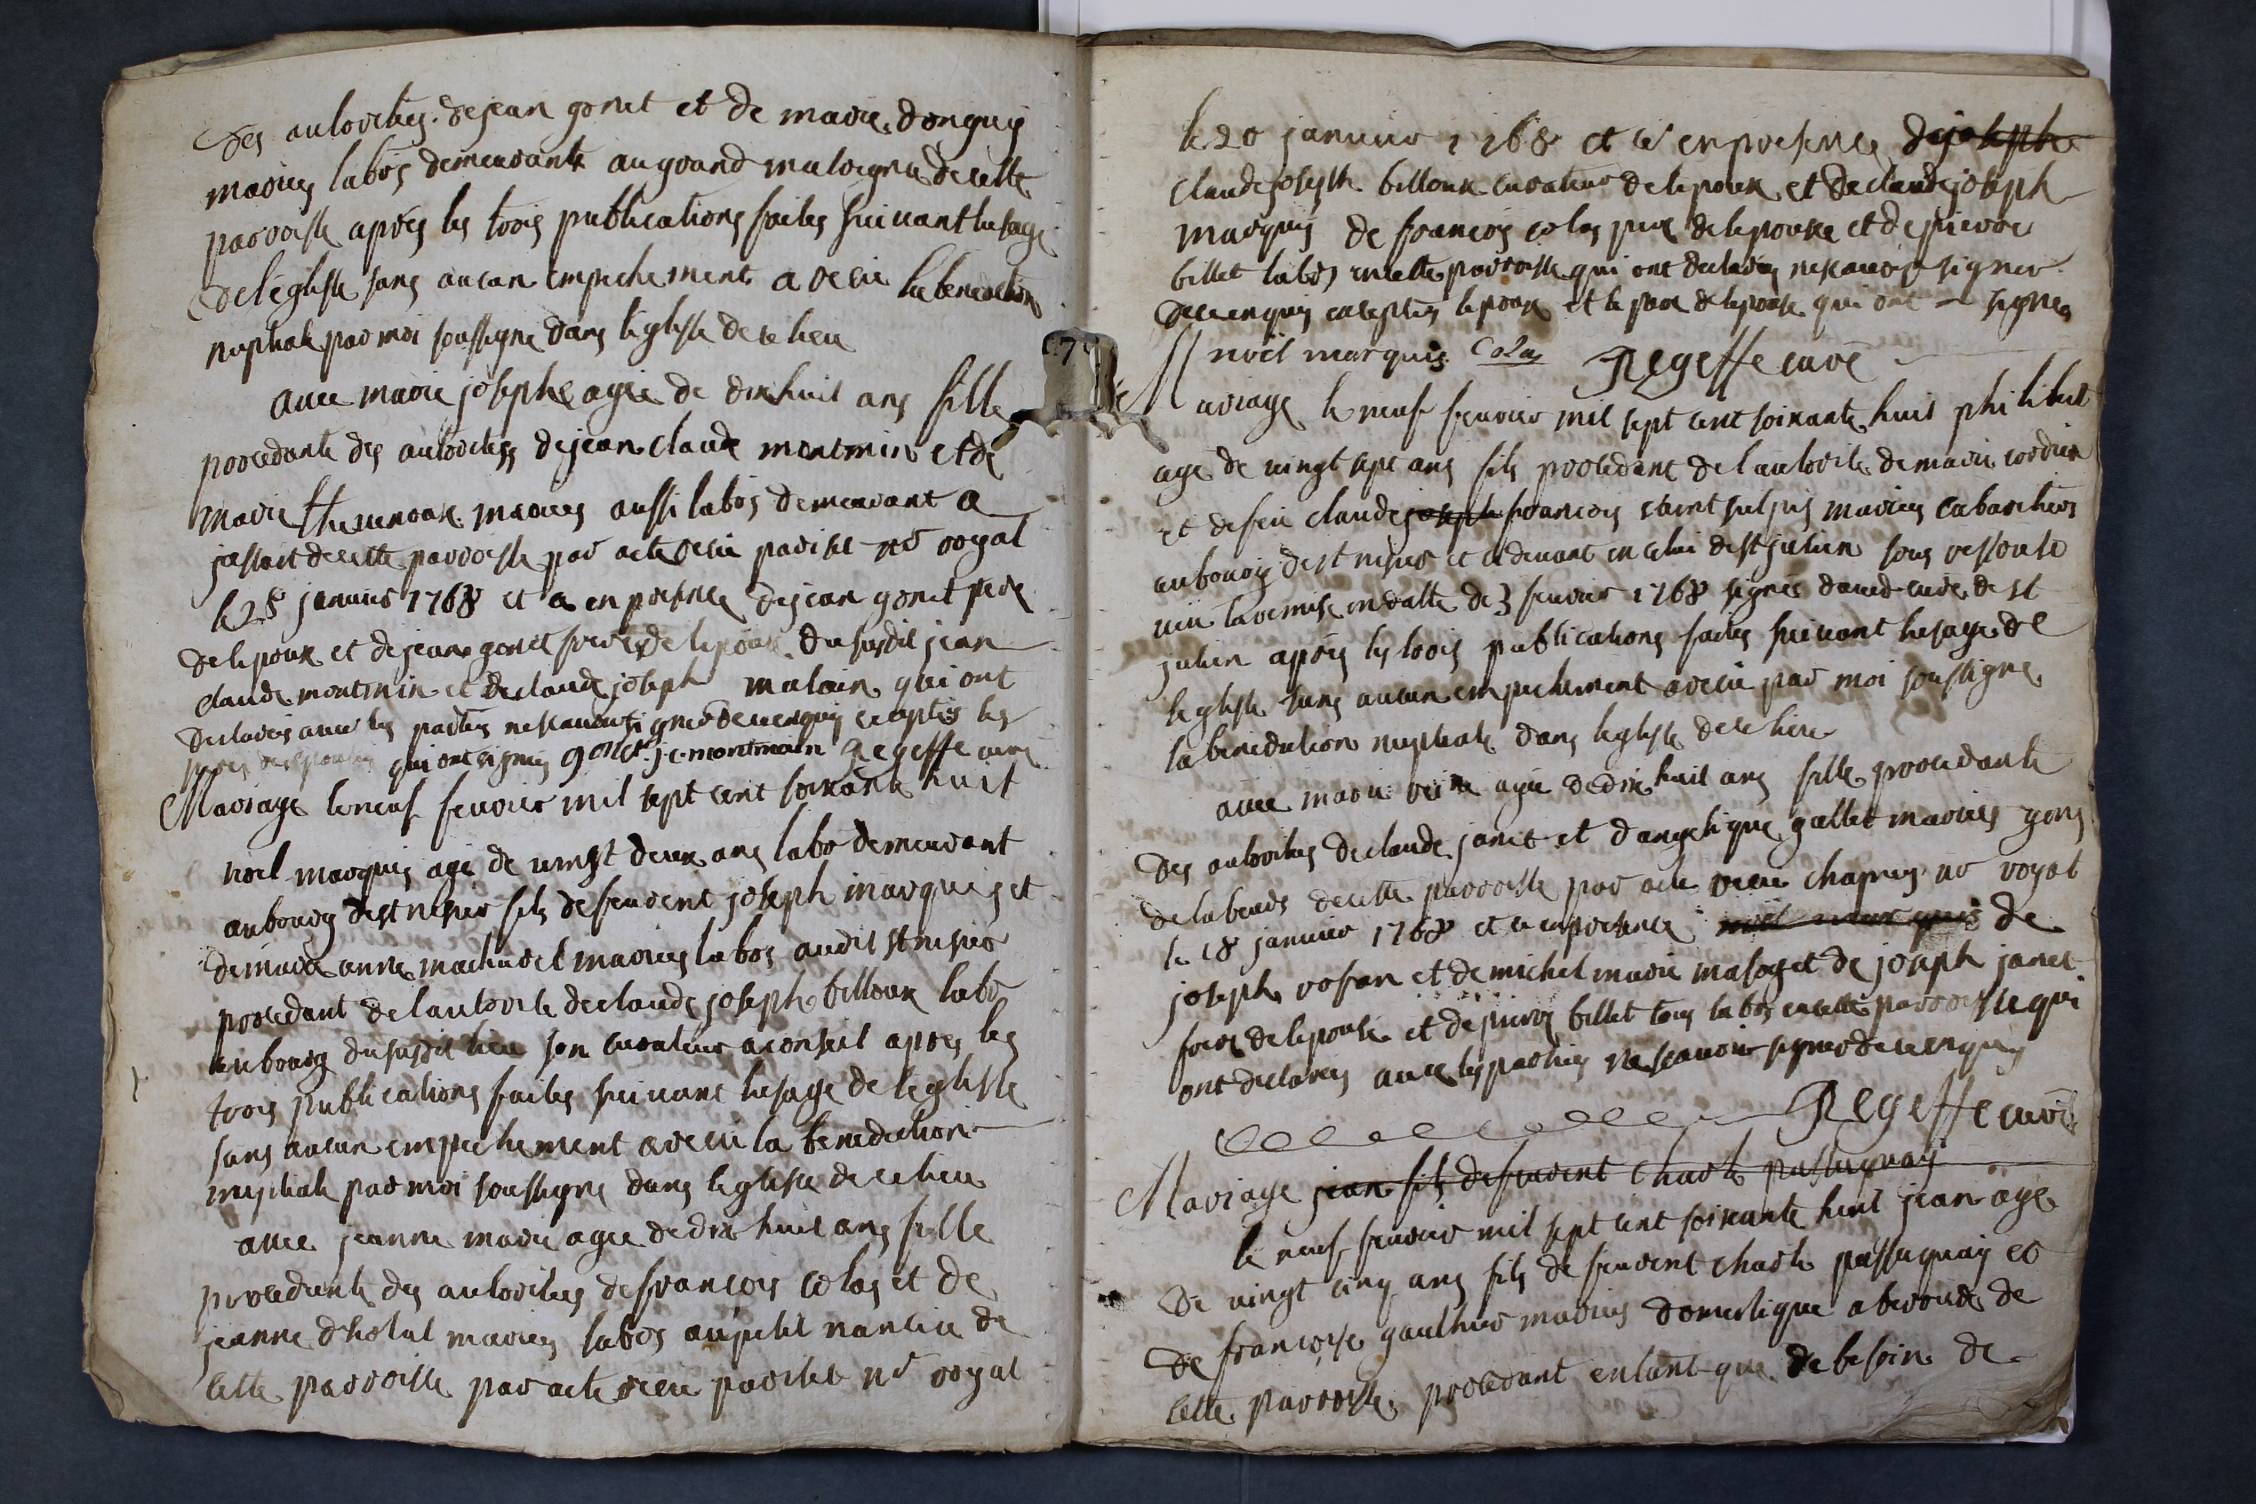 des authorites de jean gonet et de marie donguy
mariez labos demeurante au grand malvigna de cette
parroisse après les trois publications faites suivant lusage
de léglise sans aucun empechement a recu la benediction
nuptiale par moi soussigné dans léglise de ce lieu
avec marie josephe agée de dixhuit ans fille
procedante des authorites de jean claude montmin et de
marie mariez aussi labos demeurant a
de cette parroisse par acte recu parizet nre royal
le 28 janvier 1768 et ce en presence de jean gonet pere
de lepoux et de jean gonet frere de lepoux du susdit jean
claude montmin et de claude joseph qui ont
declarés avec les parties ne scavoir signer de ce enquis exceptés les
peres des epoux qui ont signés gonet j.c. montmain Regeffe curé
Mariage le neuf fevrier mil sept cent soixante huit
noel marquis agé de vingt deux ans labo demeurant
au bourg de st nisier fils de feu vent joseph marquis et
de marie anne machurel mariez labos audit st nisier
procedant de lauthorite de claude joseph billoux labo
au bourg du susdit lieu son curateur a conseil apres les
trois publications faites suivant lusage de léglise
sans aucun empechement a recu la benediction
nuptiale par moi soussigné dans léglise de ce lieu
avec jeanne marie agée de dix huit ans fille
procedante des authorites de francois colas et de
jeanne d'holut mariez labos au petit nanciu de
cette parroisse par acte recu parizet nre royal
7
le 20 janvier 1768 et ce en presence de josephe
claude joseph billoux curateur de lepoux et de claude joseph
marquis de francois colas pere de lepouse et de pierre
billet labos en cette parroisse qui ont declarés ne scavoir signer
de ce enquis exceptés lepoux et le pere de lepouse qui ont signés
noël marquis Colas Regeffe curé
Mariage le neuf fevrier mil sept cent soixante huit philibert
agé de vingt sept ans fils procedant de lauthorite de marie cordier
et de feu claude joseph francois saint sulpis mariez cabaretiers
au bourg de st nisier et ci devant en celui de st julien sous ressouse
vu la remise en datte de 3 fevrier 1768 signés david curé de st
julien après les trois publications faites suivant lusage de
leglise sans aucun empechement a recu par moi soussigné
la benediction nuptiale dans leglise de ce lieu
avec marie reine agée de dix huit ans fille procedante
des authorites de claude janet et dangelique gallet mariez
de cette parroisse par acte recu chapuy nre royal
le 18 janvier 1768 et ce en presence noël marquis de
joseph et de michel marie et de joseph janet
frere de lepouse et de pierre billet tous labos en cette parroisse qui
ont declarés avec les parties ne scavoir signer de ce enquis
Regeffe curé
Mariage jean fils de feu vent charle passuquay
le neuf fevrier mil sept cent soixante huit jean agé
de vingt cinq ans fils de feu vent charle passuquay et
de francoise gauthier mariez domestique a de
cette parroisse procedant en tant que de besoin de